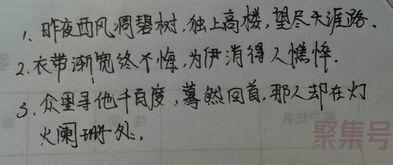 1. 昨夜西风凋碧树,独上高楼,望尽天涯路.
2.衣带渐宽终不悔,为伊消得人憔悴.
3. 众里寻他千百度,蓦然回首,那人却在灯
火阑珊处。
聚集号